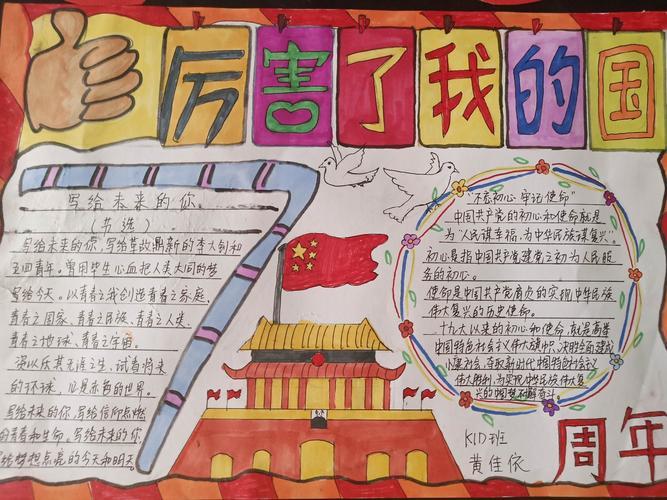 厉害了我的国
写给未来的你。
(节选)
写给未来的你,写给革故鼎新的李大钊和
五四青年。曾用毕生心血把人类大同的梦
写给今天。以青春之我创造青春之家庭、
青春之国家、青春之民族、青春之人类、
青春之地球、青春之宇宙。
资以乐其无涯之生,试看将来
的环球,必是赤色的世界。
写给未来的你,写给信仰点燃
的青春和生命。写给未来的你,
写给梦想点亮的今天和明天。
70
"不忘初心 牢记使命"
中国共产党的初心和使命就是
为"人民谋幸福,为中华民族谋复兴"。
初心是指中国共产党建党之初为人民服
务的初心。
使命是中国共产党肩负的实现中华民族
伟大复兴的历史使命。
十九大以来的初心和使命,就是高举
中国特色社会主义伟大旗帜、决胜全面建成
小康社会、夺取新时代中国特色社会主义
伟大胜利,为实现中华民族伟大复
兴的中国梦不懈奋斗。
K1D班
黄佳依
周年